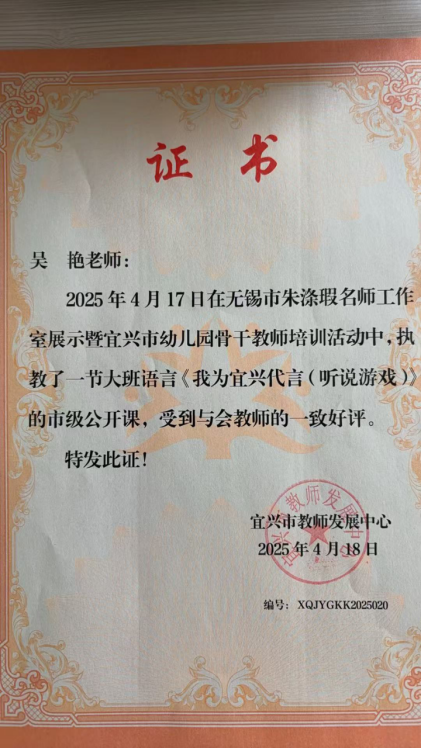 证 书
吴 艳老师:
2025 年 4 月 17 日在无锡市朱涤瑕名师工作
室展示暨宜兴市幼儿园骨干教师培训活动中,执
教了一节大班语言《我为宜兴代言(听说游戏)》
的市级公开课，受到与会教师的一致好评。
特发此证!
宜兴市教师发展中心
宜兴市教师发展中心
2025 年 4 月 18 日
编号: XQJYGKK2025020